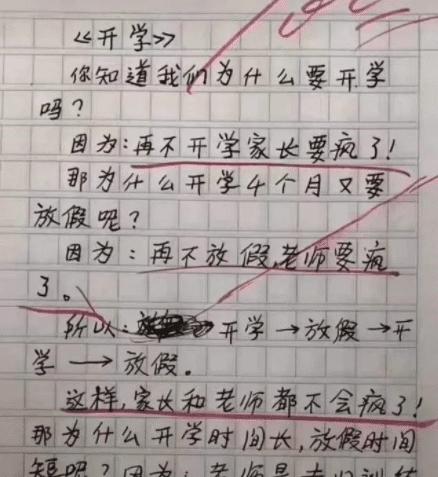 《开学》
你知道我们为什么要开学
吗？
因为：再不开学家长要疯了！
那为什么开学4个月又要
放假呢？
因为：再不放假，老师要疯
了。
所以：开学→放假→开
学→放假。
这样，家长和老师都不会疯了！
那为什么开学时间长，放假时间
短呢？因为：老师是专业训练